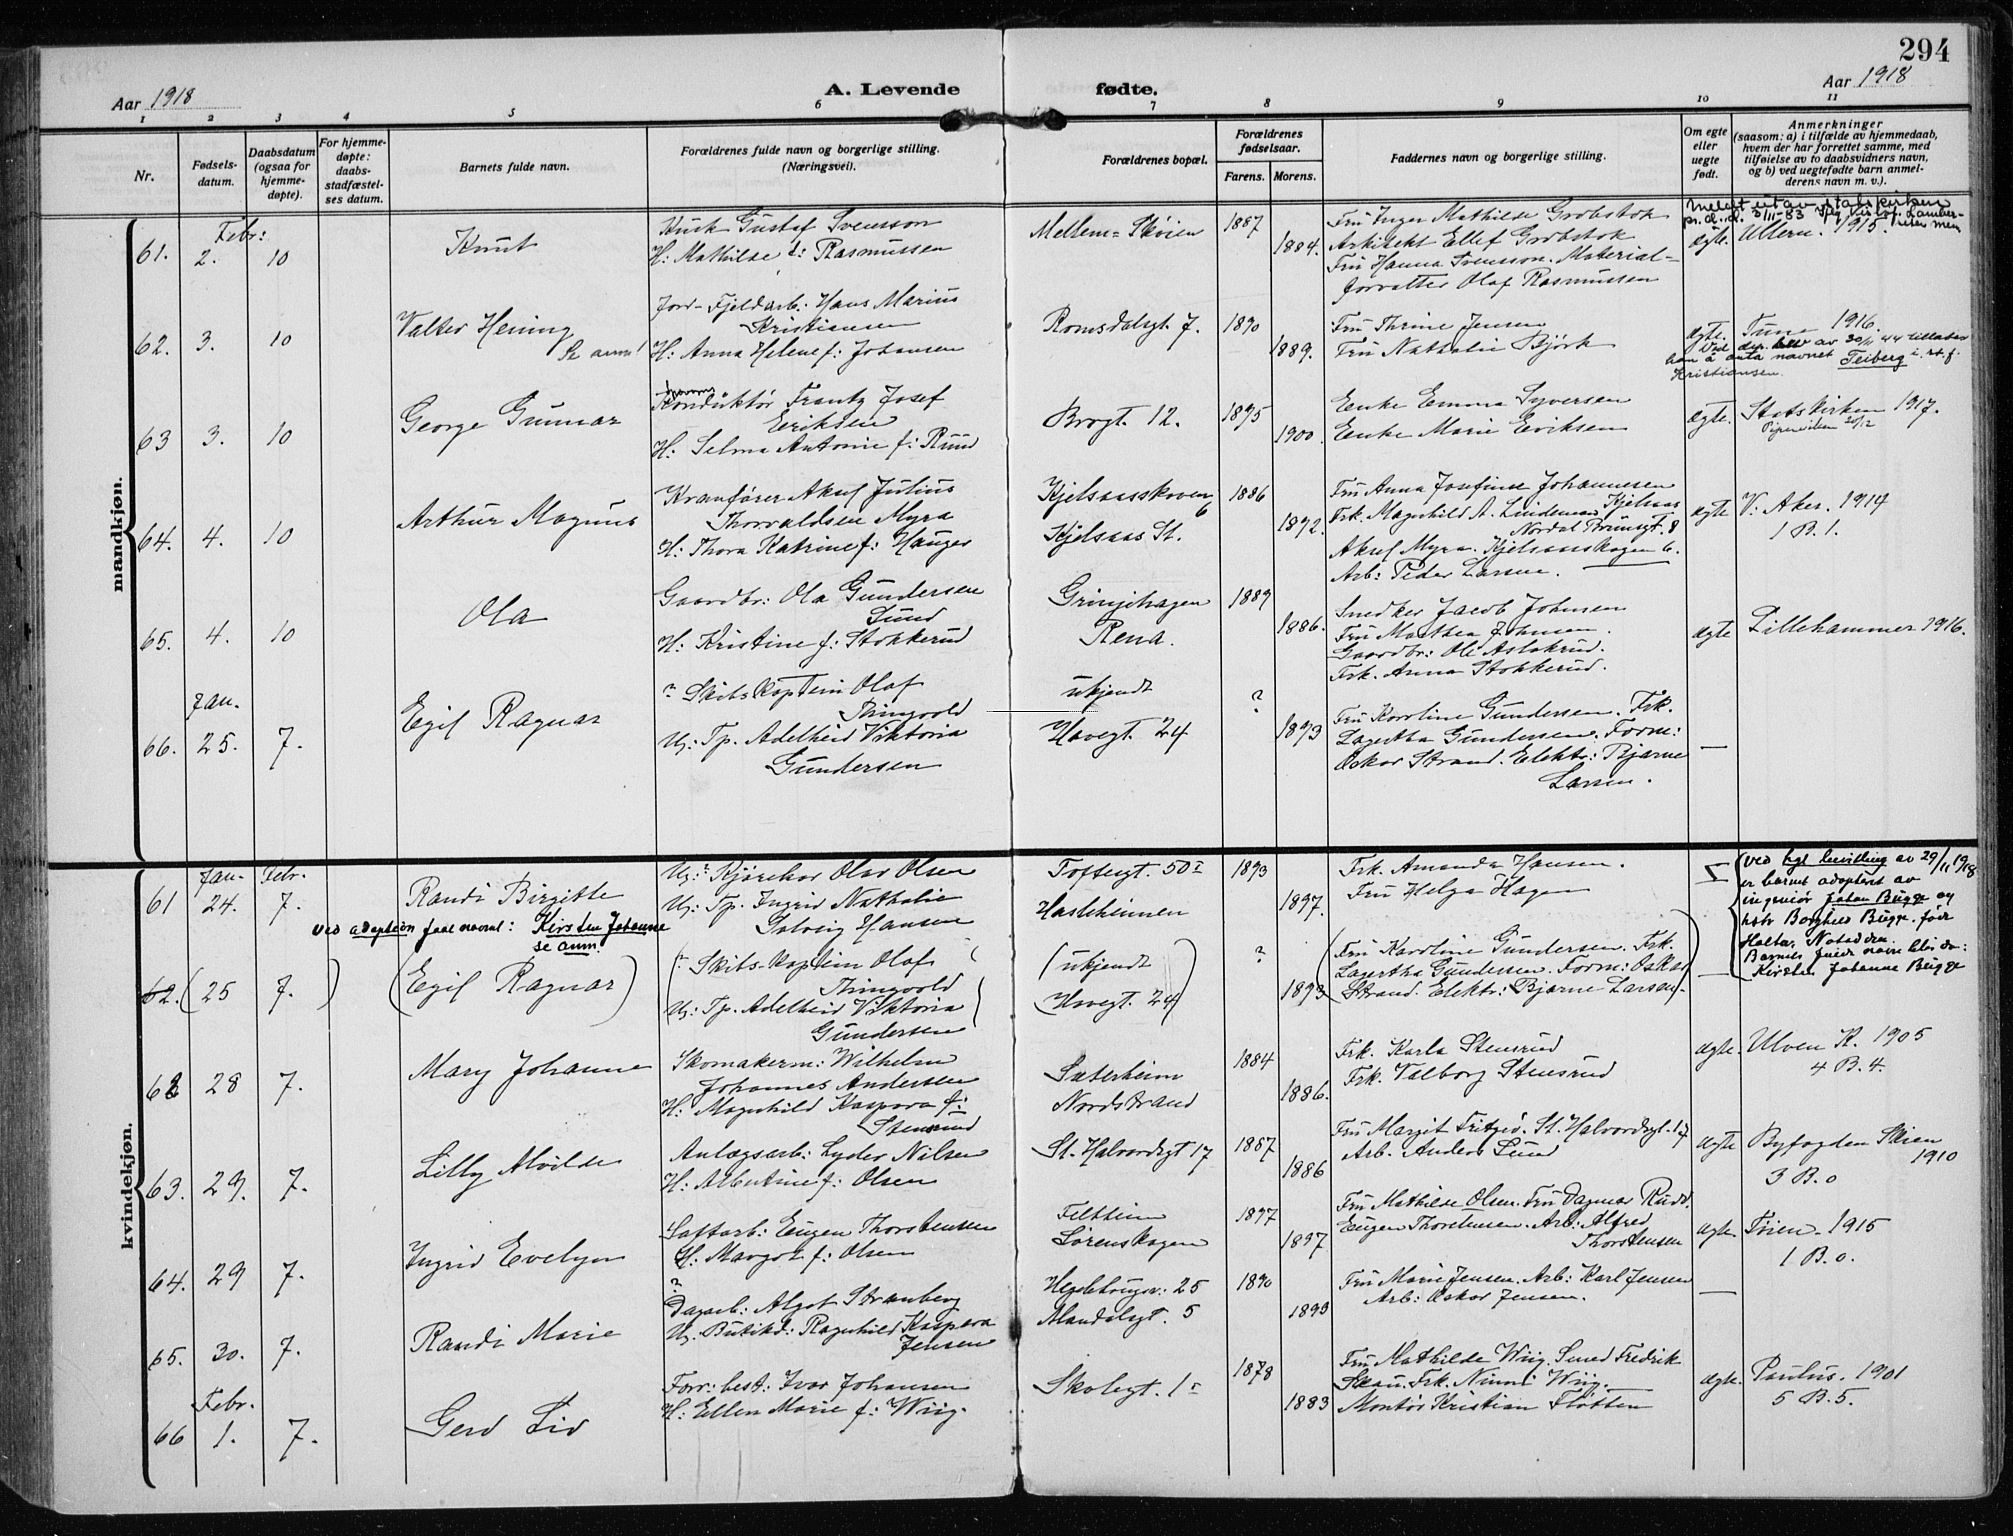 294
Aar 1918
A. Levende fødte.
Aar 1918
1 2 3 4 5 6 7 8 9 10 11
Nr.
Fødsels-
datum.
Daabsdatum
(ogsaa for
hjemme-
døpte).
For hjemme-
døpte:
daabs-
stadfæstel-
ses datum.
Barnets fulde navn.
Forældrenes fulde navn og borgerlige stilling.
(Næringsvei).
Forældrenes bopæl.
Forældrenes
fødselsaar.
Farens. Morens.
Faddernes navn og borgerlige stilling.
Om egte
eller
uegte
født.
Anmerkninger
(saasom: a) i tilfælde av hjemmedaab,
hvem der har forrettet samme, med
tilføielse av to daabsvidners navn,
og b) ved uegtefødte barn anmel-
derens navn m. v.).
mandkjøn.
61. Febr: 2. 10 Knut
Gustaf Svensson
H: Mathilde f: Rasmussen
Mellem-Skøien
1887
1884.
Fru Inger Mathilde Grobstok
Arkitekt Ellef Grobstok
Fru Hanna Svensson. Material-
forvalter Olaf Rasmussen
ægte. Ullern. 1915.
Meldt ut av statskirken
62. 3. 10 Valter Hening
Se anm!
Jord- Fjeldarb: Hans Marius
Kristiansen
H: Anna Helene f: Johansen
Romsdalsgt. 7.
1890
1889.
Fru Thrine Jensen
Fru Nathalie Bjørk
ægte. Tune 1916.
Ved dep. brev av 30/11 44 tillates
han å anta navnet Teiberg i. st. f.
Kristiansen.
63 3. 10 George Gunnar
Konduktør Frantz Josef
Eriksen
H: Selma Antonie f: Ruud
Brogt. 12.
1895
1900.
Enke Emma Syversen
Enke Marie Eriksen
ægte. Statskirken 1917.
Pipervriken 20/12
64. 4. 10 Arthur Magnus
Kranfører Aksel Julius
Thorvaldsen Myra
H: Thora Katrine f: Hauger
Kjelsaasskoven
6
Kjelsaas St.
1886
1892.
Fru Anna Josefine Johannesen
Kjelsaas
Frk. Magnhild A. Lindeman
Nordal Brunsgt. 8
Aksel Myra. Kjelsaasskogen 6.
Arb: Peder Larsen.
ægte V: Aker. 1914
1 B. 1.
65. 4. 10 Ola
Gaardbr: Ola Gundersen
Lund
H: Kristine f: Stokkerud
Grinjihagen
Rena.
1889
1886.
Snedker Jacob Johnsen
Fru Marthea Johnsen.
Gaardbr: Ole Aslakrud.
Frk. Anna Stokkerud.
ægte Lillehammer 1916.
66. Jan. 25. 7. Egil Ragnar
? Skibskaptein Olaf
Thingvold
U: Tp. Adelheid Viktoria
Gundersen
ukjendt
Havegt. 24
?
1893
Fru Karoline Gundersen. Frk.
Lagertha Gundersen. Form:
Oskar Strand. Elektr: Bjarne
Larsen.
—
kvindekjøn.
61 Jan. 24. Febr. 7. Randi Birgitte
ved adoption faat navnet: Kirsten Johanne
se anm.
U: Kjørekar Olav Olsen
U: Tp. Ingrid Nathalie
Solveig Hansen
Toftesgt. 50 I
Hasleheimen
1893
1897.
Frk. Amanda Hansen.
Fru Helga Hagen
ved kgl. bevilling av 29/11 1918
er barnet adopteret av
ingeniør Johan Bugge og
hstr Borghild Bugge, før
Holter, Notodden.
Barnets fulde navn blir da:
Kirsten Johanne Bugge
62. (25 7.) (Egil Ragnar)
(? Skibskaptein Olaf
Thingvold
U: Tp. Adelheid Viktoria
Gundersen)
(ukjendt
Havegt. 24)
?
1893
(Fru Karoline Gundersen. Frk.
Lagertha Gundersen. Form: Oskar
Strand. Elektr: Bjarne Larsen.
—
62 28 7. Mary Johanne
Skomakerm: Wilhelm
Johannes Andersen
H: Magnhild Kaspara f:
Stensrud
Sæterheim
Nordstrand
1884
1886.
Frk. Karla Stensrud
Frk. Valborg Stensrud
ægte. Ulven K. 1905
4 B. 4.
63. 29. 7. Lilly Alvilde
Anlægsarb: Lyder Nilsen
H: Albertine f: Olsen
St. Halvardsgt 17
1887
1886
Fru Margit Fritzvd. St. Halvardsgt. 17
Arb. Anders Lund
ægte Byfogden Skien
1910
3 B. 0
64. 29 7. Ingrid Evelyn
Saftarb: Eugen Thorstensen
H: Margot f: Olsen
Feltheim
Lørenskogen
1897
1897
Fru Mathilde Olsen. Fru Dagmar Rudd.
Eugen Thorstensen. Arb: Alfred
Thorstensen
ægte. Tøien. 1915
1 B. 0.
65. 30. 7. Randi Marie
?
Dagarb: Algot Stranberg
U: Butikd: Ragnhild Kaspara
Jensen
Hegdehaugsv: 25
Mandalsgt. 5
1890
1893
Fru Marie Jensen. Arb: Karl Jensen
Arb: Oskar Jensen.
—
66 Febr. 1. 7. Gerd Liv
Forr: best: Ivar Johansen
H: Ellen Marie f: Wiig.
Skolegt. 1 I
1878
1883
Fru Mathilde Wiig. Smed Fredrik
Skau. Frk. Nunni Wiig.
Montør Kristian Fløtten
ægte. Paulus. 1901
5 B. 5.